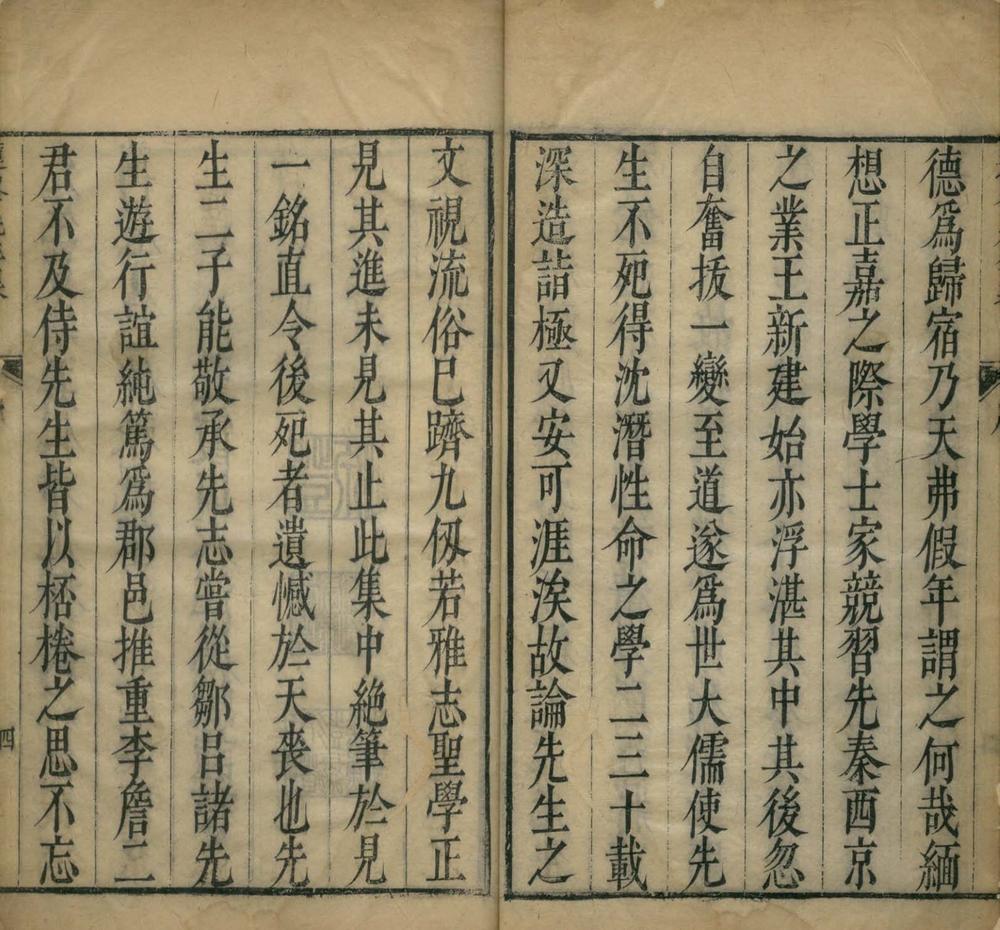 德爲歸宿乃天弗假年謂之何哉緬
想正嘉之際學士家競習先秦西京
之業王新建始亦浮湛其中其後忽
自奮拔一變至道遂爲世大儒使先
生不死得沈潛性命之學二三十載
深造詣極又安可涯涘故論先生之
文視流俗已躋九仭若雅志聖學正
見其進未見其止此集中絶筆於見
一銘直令後死者遺憾於天喪也先
生二子能敬承先志嘗從鄒吕諸先
生遊行誼純篤爲郡邑推重李詹二
君不及侍先生皆以桮棬之思不忘
四